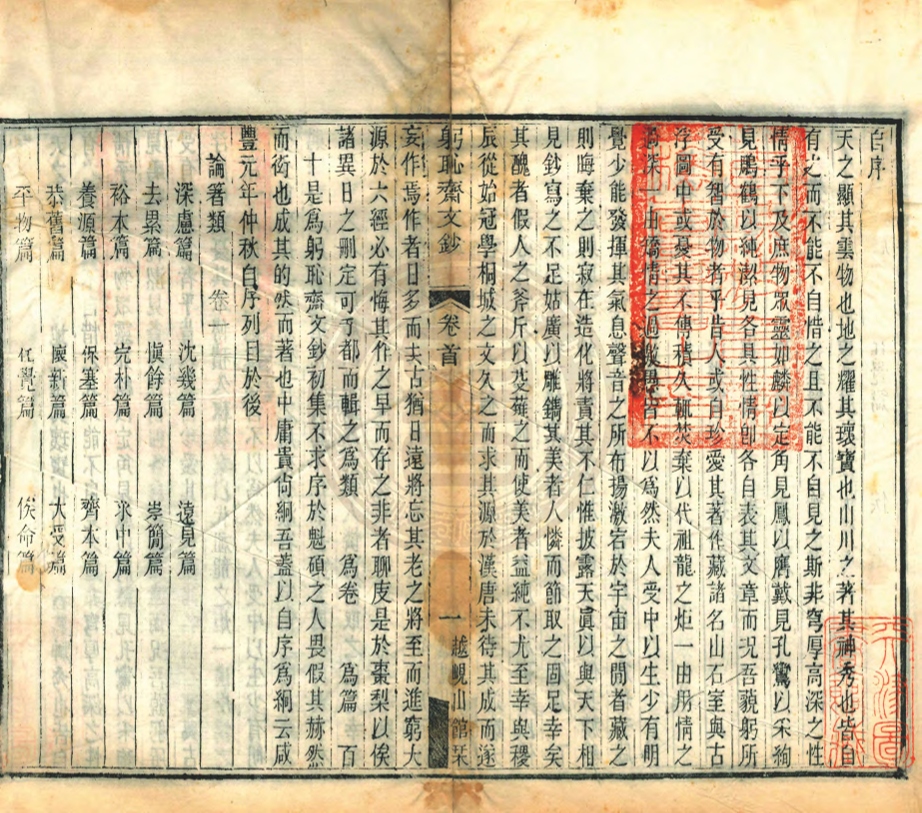 自序
天之顯其雲物也地之耀其瓌寶也山川之著其神秀也皆自
有之而不能不自惜之且不能不自見之斯非穹厚高深之性
情乎下及庶物眾靈如麟以定角見鳳以膺戴見孔鸞以采絢
見鵰鶴以純潔見各具性情卽各自表其文章而況吾藐躬所
受有智於物者乎昔人或自珍愛其著作藏諸名山石室與古
浮圖中或憂其不傳積久輒焚棄以代祖龍之炬一由用情之
過深一由矯情之過激愚皆不以爲然夫人受中以生少有明
覺少能發揮其氣息聲音之所布揚激宕於宇宙之閒者藏之
則晦棄之則寂在造化將責其不仁惟披露天眞以與天下相
見鈔寫之不足姑廣以雕鐫其美者人憐而節取之固足幸矣
其醜者假人之斧斤以芟薙之而使美者益純不尤至幸與稷
辰從始冠學桐城之文久之而求其源於漢唐未待其成而遂
躬恥齋文鈔
卷首
一
越峴山館栞
妄作焉作者日多而去古猶日遠將忘其老之將至而進窮大
源於六經必有悔其作之早而存之非者聊庋是於棗梨以俟
諸異日之刪定可乎都而輯之爲類 爲卷 爲篇 百
十是爲躬恥齋文鈔初集不求序於魁碩之人畏假其赫然
而衒也成其的然而著也中庸貴尙絅吾蓋以自序爲絅云咸
豐元年仲秋自序列目於後
論箸類 卷一
深慮篇 沈幾篇 遠見篇
去累篇 愼餘篇 崇簡篇
裕本篇 完朴篇 求中篇
養源篇 保塞篇 齊本篇
恭舊篇 厭新篇 大受篇
平物篇 任覺篇 俟命篇